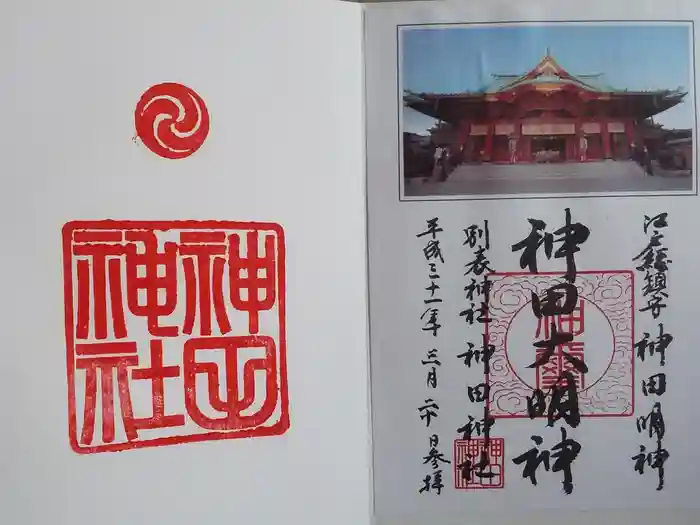 江戸総鎮守 神田明神
神田大明神
別表神社 神田神社
平成三十一年 三月 二十日参拝
神田
神社
神田
神社